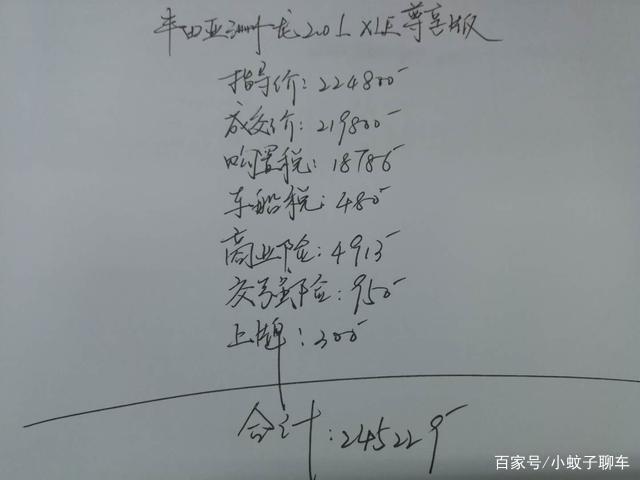 丰田亚洲龙2.0L XLE尊享版
指导价:224800
成交价:219800
购置税:18786
车船税:480
商业险:4913
交强险:950
上牌:300
合计:245229
百家号/小蚊子聊车